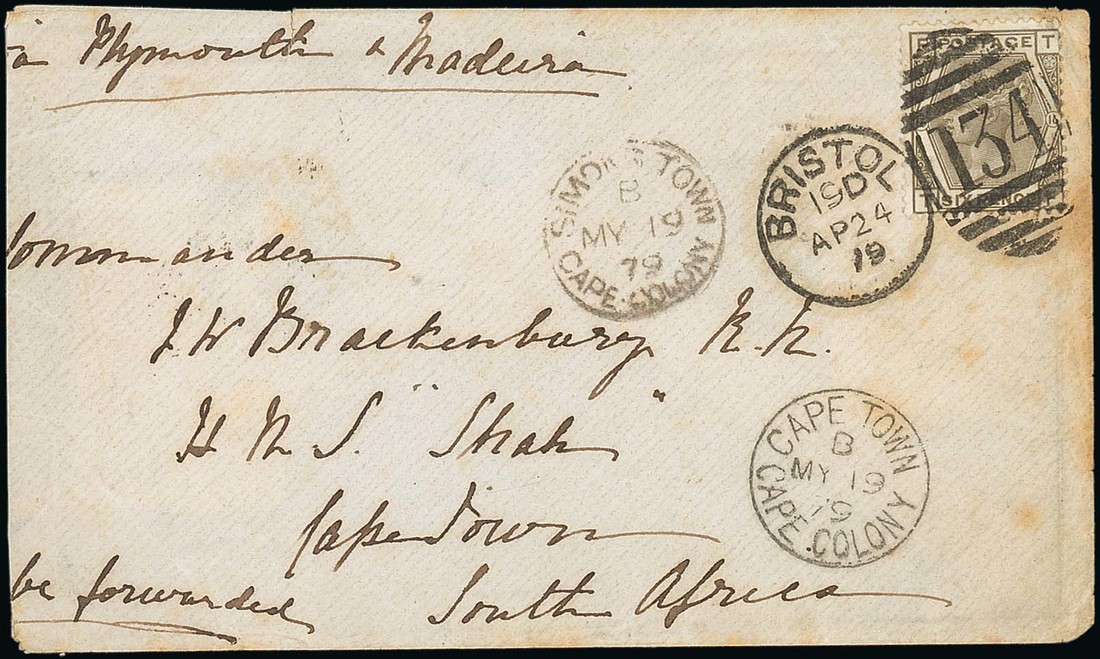 a Plymouth & Madeira
F POSTAGE T
134
T SIX PENCE F
BRISTOL
19D
AP 24
79
SIMONS TOWN
B
MY 19
79
CAPE COLONY
ommander
J W Brackenbury R.N.
H M S "Shah"
Cape Town
South Africa
be forwarded
CAPE TOWN
B
MY 19
79
CAPE COLONY